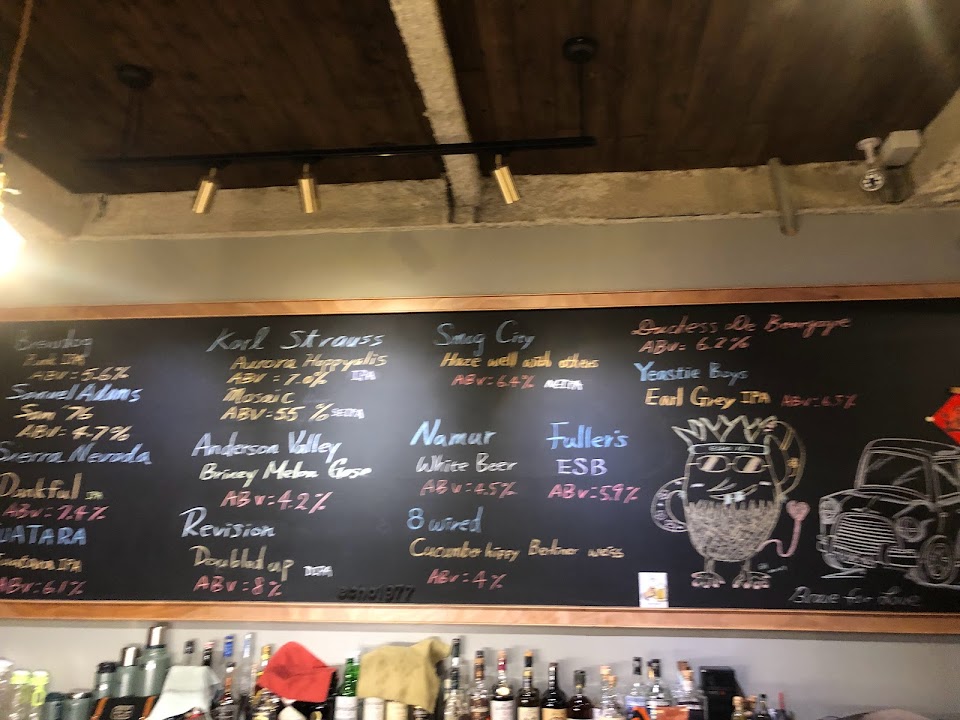 Brewdog
Punk IPA
ABV: 5.6%
Samuel Adams
Sam '76
ABV: 4.7%
Sierra Nevada
Dankful IPA
ABV: 7.4%
UATARA
IPA
ABV: 6.1%
Karl Strauss
Aurora Hoppyalis
ABV: 7.0% IPA
Mosaic
ABV: 5.5% SEIPA
Anderson Valley
Briney Melon Gose
ABV: 4.2%
Revision
Doubled up DIPA
ABV: 8%
Smog City
Haze well with others
ABV: 6.4% NEIPA
Namur
White Beer
ABV: 4.5%
Fuller's
ESB
ABV: 5.9%
8 wired
Cucumber hippy Berliner weiss
ABV: 4%
echo1977
Duchess De Bourgogne
ABV: 6.2%
Yeastie Boys
Earl Grey IPA ABV: 6.5%
Brave for Love